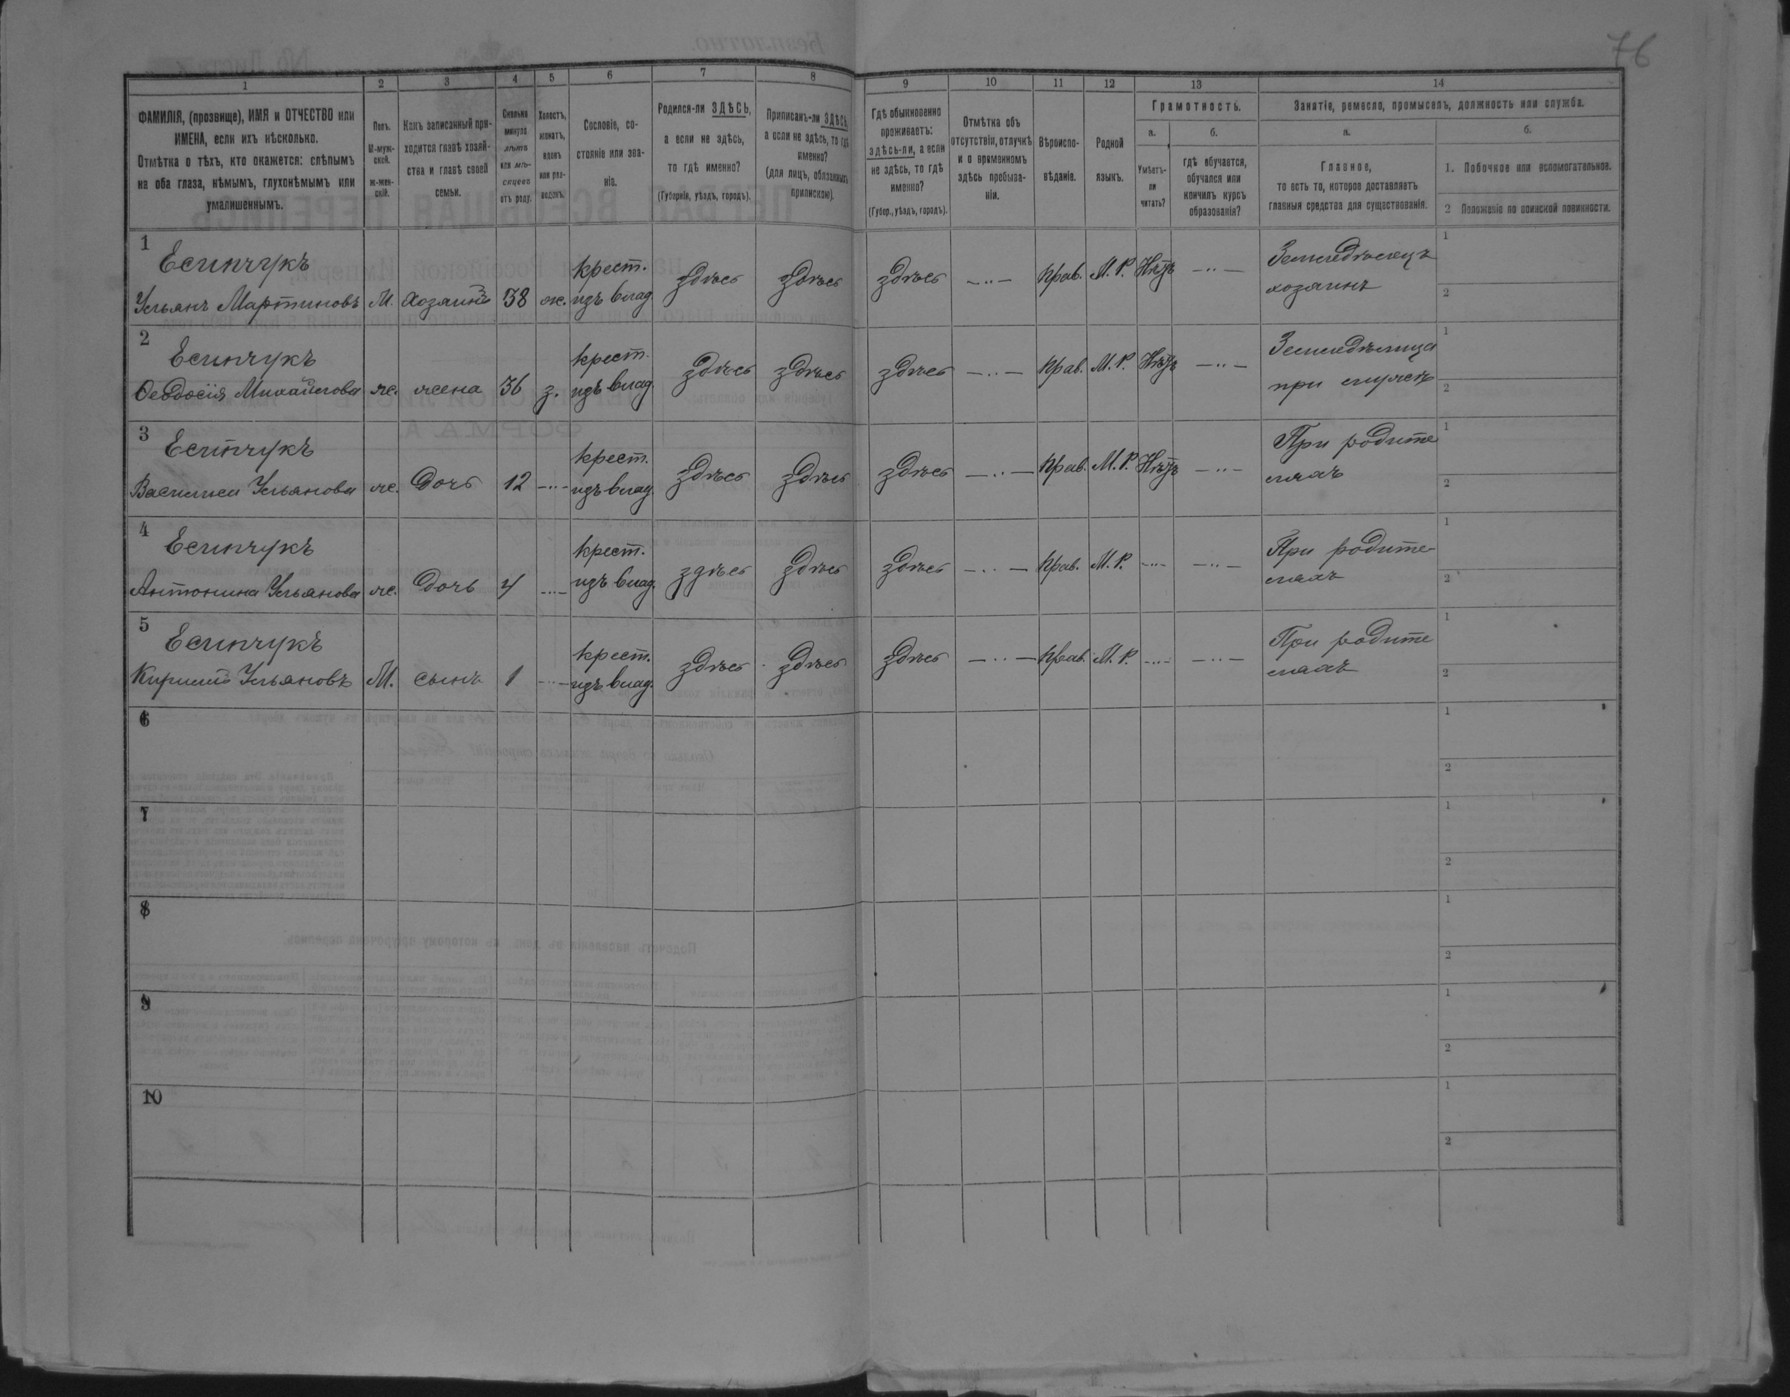 76
1 2 3 4 5 6 7 8 9 10 11 12 13 14
ФАМИЛІЯ, (прозвище), ИМЯ и ОТЧЕСТВО или
ИМЕНА, если ихъ нѣсколько.
Отмѣтка о тѣхъ, кто окажется: слѣпымъ
на оба глаза, нѣмымъ, глухонѣмымъ или
умалишеннымъ.
Полъ.
М-муж-
ской.
ж-жен-
скій.
Какъ записанный при-
ходится главѣ хозяй-
ства и главѣ своей
семьи.
Сколько
минуло
лѣтъ
или мѣ-
сяцевъ
отъ роду.
Холостъ,
женатъ,
вдовъ
или раз-
веденъ.
Сословіе, со-
стояніе или зва-
ніе.
Родился-ли ЗДѢСЬ,
а если не здѣсь,
то гдѣ именно?
(Губернія, уѣздъ, городъ).
Приписанъ-ли ЗДѢСЬ,
а если не здѣсь, то гдѣ
именно?
(для лицъ, обязанныхъ
припиской).
Гдѣ обыкновенно
проживаетъ:
здѣсь-ли, а если
не здѣсь, то гдѣ
именно?
(Губер., уѣздъ, городъ).
Отмѣтка объ
отсутствіи, отлучкѣ
и о временномъ
здѣсь пребыва-
ніи.
Вѣроиспо-
вѣданіе.
Родной
языкъ.
Грамотность.
а.
Умѣетъ-
ли
читать?
б.
гдѣ обучается,
обучался или
кончилъ курсъ
образованія?
Занятіе, ремесло, промыселъ, должность или служба.
а.
Главное,
то есть то, которое доставляетъ
главныя средства для существованія.
б.
1. Побочное или вспомогательное.
2 Положеніе по воинской повинности.
1
Есипчукъ
Ульянъ Мартиновъ М. хозяинъ 38 ж.
крест.
изъ влад.
здѣсь здѣсь здѣсь —..— Прав. М. Р. Нѣтъ —..—
Земледѣлецъ
хозяинъ
1
2
2
Есипчукъ
Ѳеодосія Михайлова ж. жена 36 з.
крест.
изъ влад.
здѣсь здѣсь здѣсь —..— Прав. М. Р. Нѣтъ —..—
Земледѣлица
при мужѣ
1
2
3
Есипчукъ
Василиса Ульянова ж. дочь 12 —..—
крест.
изъ влад.
здѣсь здѣсь здѣсь —..— Прав. М. Р. Нѣтъ —..—
При родите
ляхъ
1
2
4
Есипчукъ
Антонина Ульянова ж. дочь 4 —..—
крест.
изъ влад.
здѣсь здѣсь здѣсь —..— Прав. М. Р. —..— —..—
При родите-
ляхъ
1
2
5
Есипчукъ
Кирилъ Ульяновъ М. сынъ 1 —..—
крест.
изъ влад.
здѣсь здѣсь здѣсь —..— Прав М. Р. —..— —..—
При родите
ляхъ
1
2
6
1
2
7
1
2
8
1
2
9
1
2
10
1
2